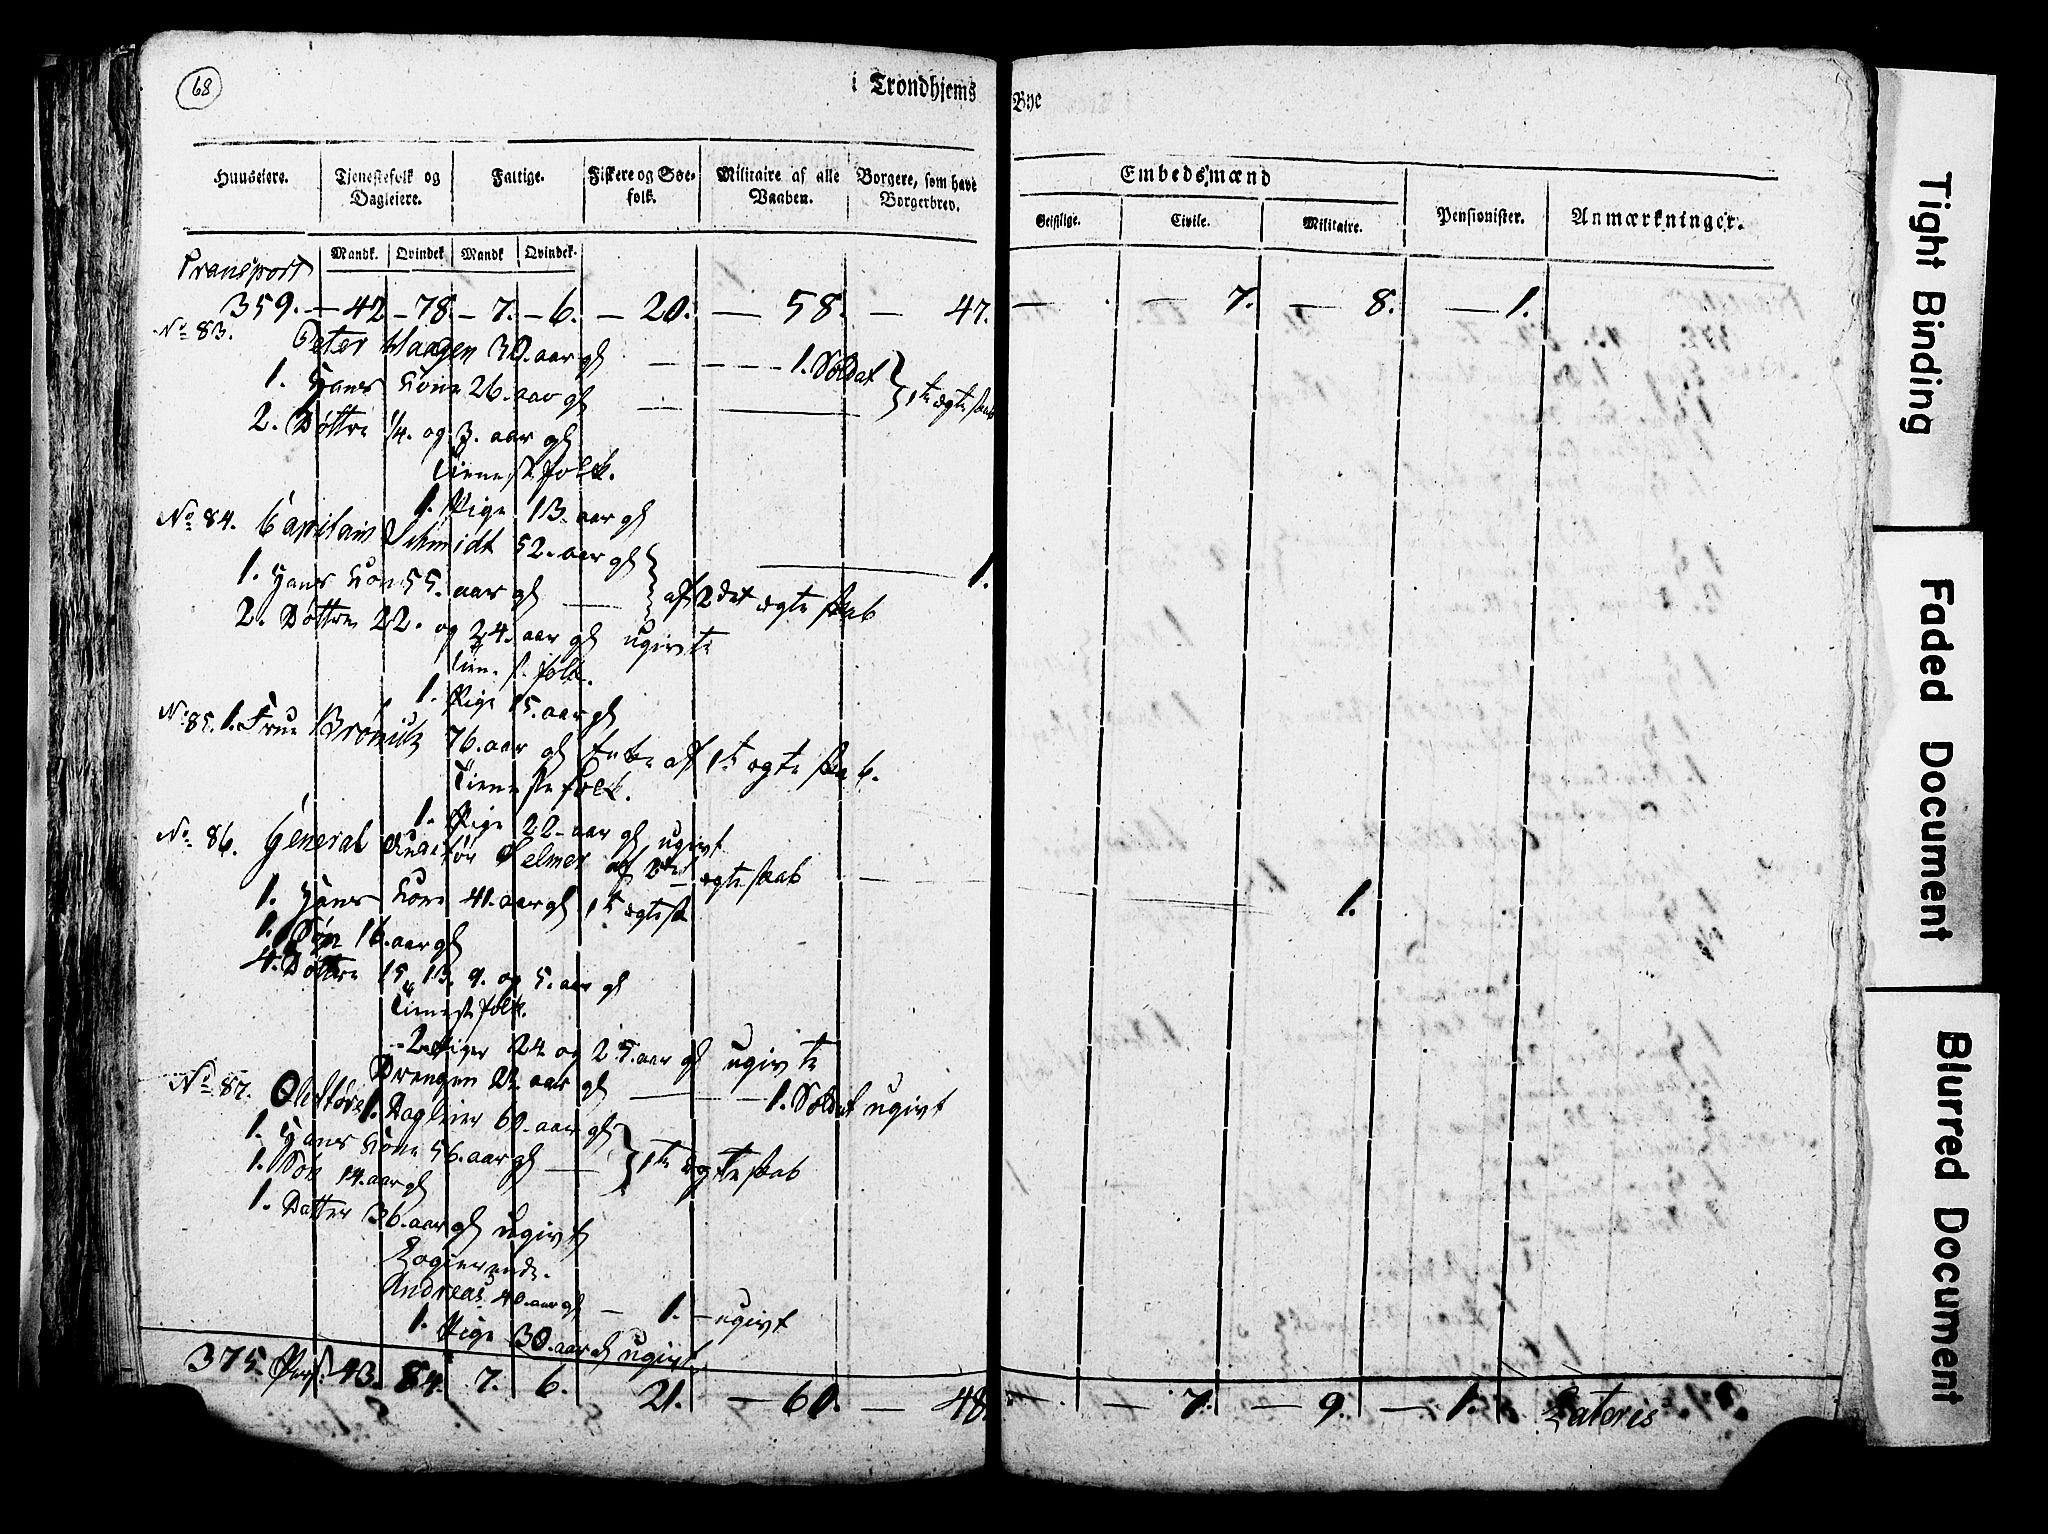 68
i Trondhjems Bye
Huuseiere. Tjenestefolk og Dagleiere. Fattige. Fiskere og Søe-folk. Militaire af alle Vaaben. Borgere, som have Borgerbrev. Embedsmænd Pensionister. Anmærkninger.
Mandk. Qvindek Mandk Qvindek. Geistlige. Civile. Militaire.
Transport
359. — 42 — 78. — 7. — 6. — 20. — 58. — 47. — . — 7. — 8. — 1.
No 83. Peter Haagen 30. aar gl — — — 1. Soldat
1. Hans Kone 26. aar gl — — 1te ægteskab
2. Døttre 1/4. og 3. aar gl
Tienestefolk.
1. Pige 13. aar gl
No 84. Capitain Schmidt 52. aar gl — 1.
1. Hans Kone 55. aar gl — af 2det ægteskab
2. Døttre 22. og 24. aar gl ugivte
Tienestfolk.
1. Pige 15. aar gl
No 85. 1. Frue 76. aar gl Enke af 1te ægteskab.
Tienestefolk.
1. Pige 22. aar gl ugivt
No 86. General Auditør Selmer af 2det ægteskab
1. Hans Kone 41. aar gl 1te ægtesk — 1.
1. Søn 16. aar gl
4. Døttre 15, 13, 9. og 5. aar gl
Tienestefolk.
2 Piger 24 og 25. aar gl ugivte
Drengen 22. aar gl — — 1. Soldat ugivt
No 87. Ole 1. Dagleier 60. aar gl
1. Hans Kone 56. aar gl — 1te ægteskab
1. Søn 14. aar gl
1. Datter 36. aar gl ugivt
Logierende.
Andreas 40. aar gl — 1. — ugivt
1. Pige 30. aar gl ugivt
375. Pers. 43. 84. 7. 6. 21. — 60. — 48. — . — 7. — 9. — 1. Lateris
Tight Binding
Faded Document
Blurred Document